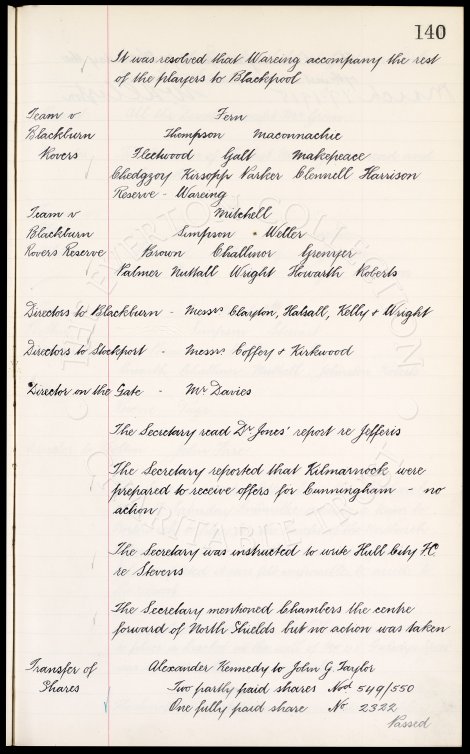 140
It was resolved that Wareing accompany the rest
of the players to Blackpool
Team v Fern
Blackburn Thompson Maconnachie
Rovers Fleetwood Galt Makepeace
Chedgzoy Kirsopp Parker Clennell Harrison
Reserve - Wareing
Team v Mitchell
Blackburn Simpson Weller
Rovers Reserve Brown Challinor Grenyer
Palmer Nuttall Wright Howarth Roberts
Directors to Blackburn - Messrs Clayton, Halsall, Kelly & Wright
Directors to Stockport - Messrs Coffey & Kirkwood
Director on the Gate - Mr Davies
The Secretary read Dr Jones' report re Jefferis
The Secretary reported that Kilmarnock were
prepared to receive offers for Cunningham - no
action
The Secretary was instructed to write Hull City FC
re Stevens
The Secretary mentioned Chambers the centre
forward of North Shields but no action was taken
Transfer of Alexander Kennedy to John G Taylor
Shares Two partly paid shares Nos 549/550
One fully paid share No 2322
Passed
THE EVERTON COLLECTION
CHARITABLE TRUST